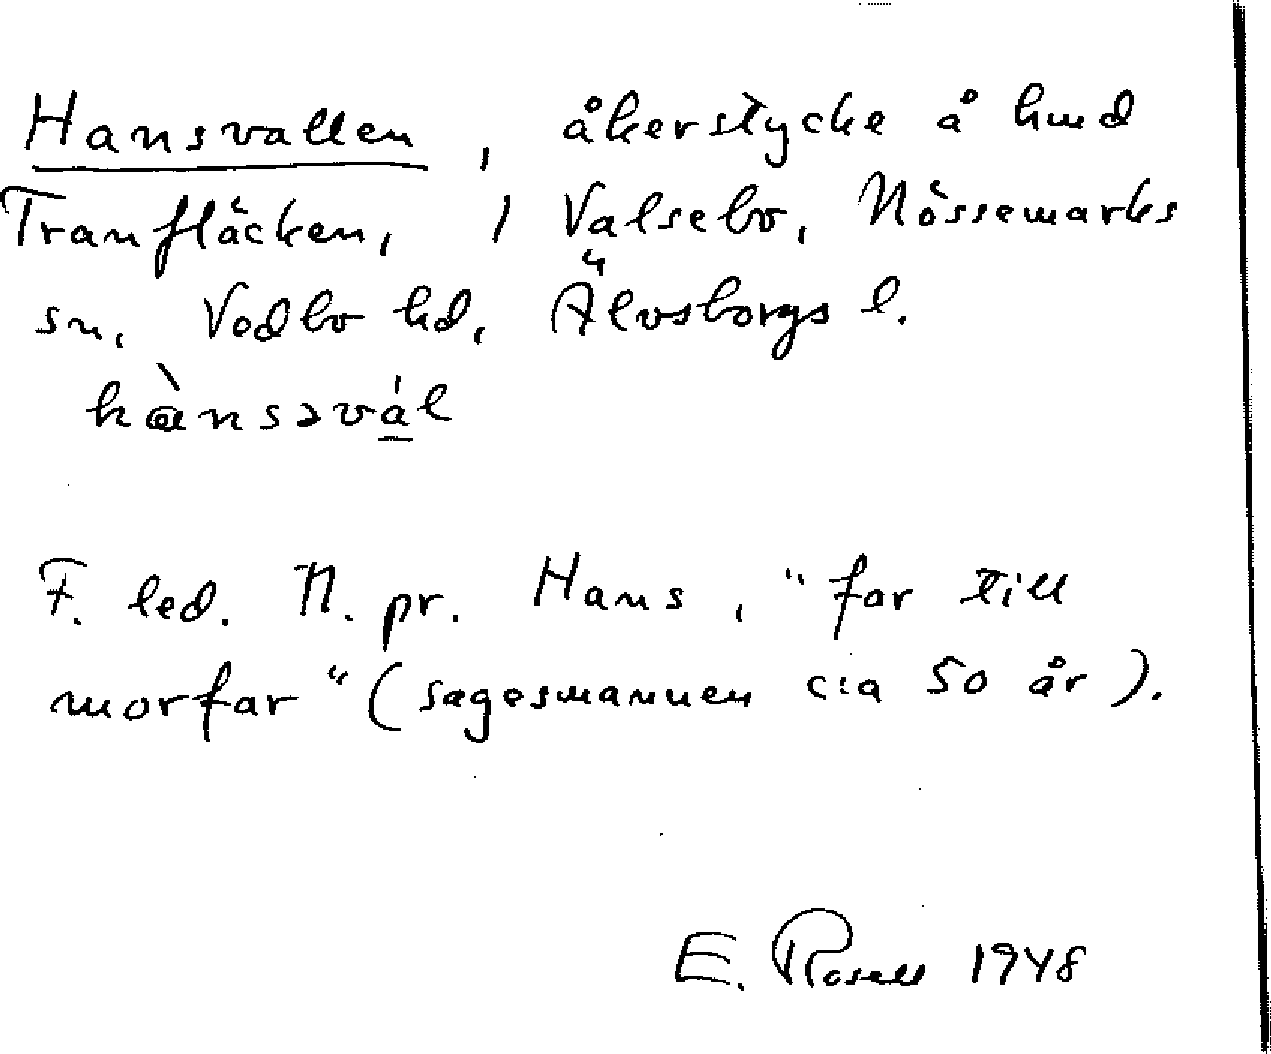 Hansvallen, åkerstycke å hmd
Tranfläcken, 1 Valsebo, Nössemarks
sn, Vedbo hd, Älvsborgs l.
hànsəvál
F. led. N. pr. Hans, "far till
morfar" (sagesmannen c:a 50 år).
E. Rosell 1948